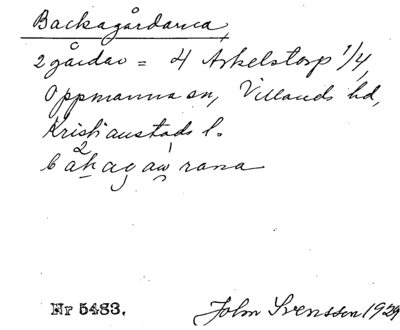 Backagårdarna,
2 gårdar = 4 Arkelstorp 1/4,
Oppmanna sn, Villands hd,
Kristianstads l.
Nr 5483. John Svensson 1929